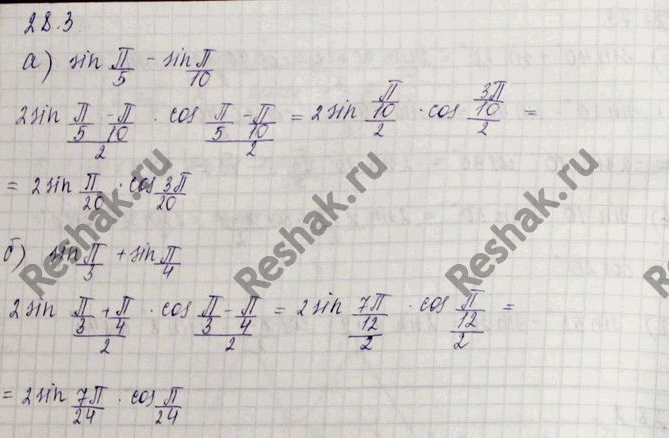 28.3.
а) sin π/5 - sin π/10
2sin (π/5 - π/10)/2 · cos (π/5 - π/10)/2 = 2sin (π/10)/2 · cos (3π/10)/2 =
= 2sin π/20 · cos 3π/20
б) sin π/3 + sin π/4
2sin (π/3 + π/4)/2 · cos (π/3 - π/4)/2 = 2sin (7π/12)/2 · cos (π/12)/2 =
= 2sin 7π/24 · cos π/24
Reshak.ru
Reshak.ru
Reshak.ru
Reshak.ru